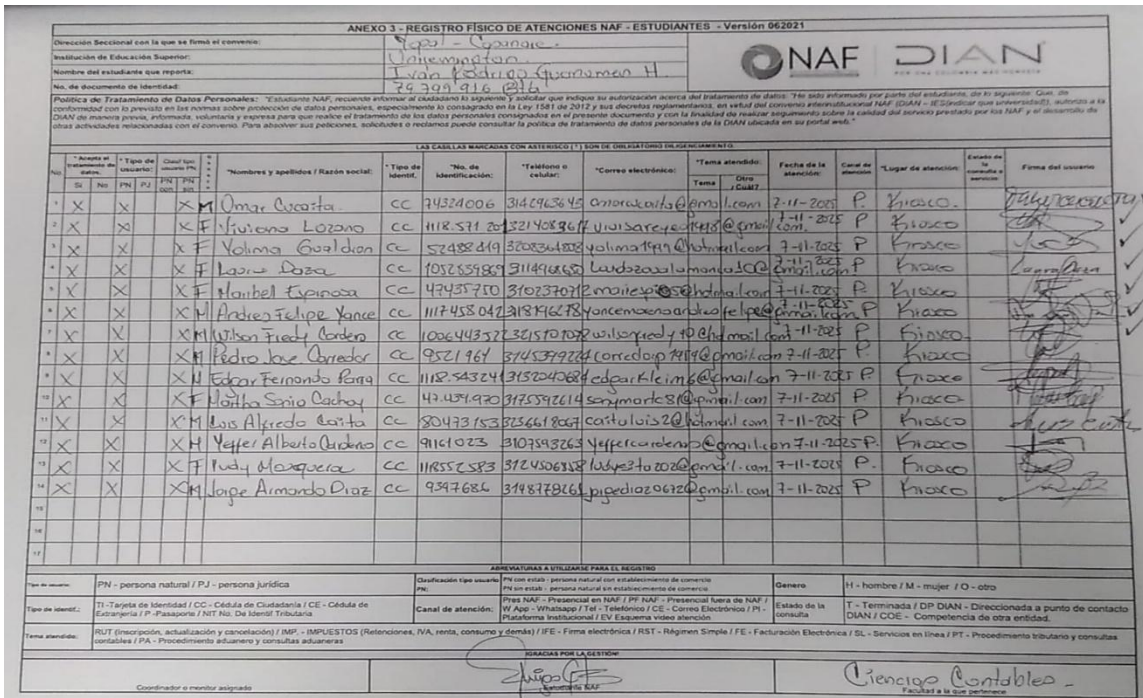 ANEXO 3 - REGISTRO FÍSICO DE ATENCIONES NAF - ESTUDIANTES - Versión 062021
Dirección Seccional con la que se firmó el convenio: Yopal - Casanare.
Institución de Educación Superior: Uniremington.
Nombre del estudiante que reporta: Ivan Rodrigo H.
No. de documento de Identidad: 79.799.916
NAF DIAN
POR UNA COLOMBIA MÁS HONESTA
Política de Tratamiento de Datos Personales: "Estudiante NAF, recuerde informar al ciudadano lo siguiente y solicitar que indique su autorización acerca del tratamiento de datos. "He sido informado por parte del estudiante, de lo siguiente: Que, de
conformidad con lo previsto en las normas sobre protección de datos personales, especialmente lo consagrado en la Ley 1581 de 2012 y sus decretos reglamentarios, en virtud del convenio interinstitucional NAF (DIAN - IES(indicar que universidad)), autorizo a la
DIAN de manera previa, informada, voluntaria y expresa para que realice el tratamiento de los datos personales consignados en el presente documento y con la finalidad de realizar seguimiento sobre la calidad del servicio prestado por los NAF y el desarrollo de
otras actividades relacionadas con el convenio. Para absolver sus peticiones, solicitudes o reclamos puede consultar la política de tratamiento de datos personales de la DIAN ubicada en su portal web."
LAS CASILLAS MARCADAS CON ASTERISCO (*) SON DE OBLIGATORIO DILIGENCIAMIENTO.
No. *Acepta el tratamiento de datos. Si No *Tipo de usuario: PN PJ Clasif tipo usuario PN: PN con. PN sin *Nombres y apellidos / Razón social: *Tipo de identif. *No. de identificación: *Teléfono o celular: *Correo electrónico: *Tema atendido: Tema Otro ¿Cuál? Fecha de la atención: Canal de atención: *Lugar de atención: Estado de la consulta o servicio: Firma del usuario
1 X X X M Omar Cucaita. CC 74324006 3142963645 @gmail.com 7-11-2025 P. Kiosco.
2 X X X F Viviana Lozano CC 7-11-2025 P Kiosco
3 X X X F Yolima Gualdron CC 52488419 yolima1499@hotmail.com 7-11-2025 P Kiosco
4 X X X F Laura Daza CC 1052839869 7-11-2025 P Kiosco Laura Daza
5 X X X F Maribel Espinosa CC 47435750 3102370712 7-11-2025 P Kiosco
6 X X X M Andres Felipe Yance CC 1117458042 3118746278 7-11-2025 P Kiosco
7 X X X M Wilson Fredy Cordero CC 1006443522 7-11-2025 P Kiosco.
8 X X X M Pedro Jose Corredor CC 9521964 3145399224 @gmail.com 7-11-2025 P. Kiosco
9 X X X M Edgar Fernando Parra CC 1118.54324 3132040684 edgarkleim6@gmail.com 7-11-2025 P Kiosco
10 X X X F Martha Sonia Cachay CC 47.434.970 3175592614 sonymarte81@gmail.com 7-11-2025 P Kiosco
11 X X X M Luis Alfredo Caita CC 80473153 3236618067 caituluis2@hotmail.com 7-11-2025 P Kiosco
12 X X X M Yeffer Alberto Cardeno CC 91161023 3107593263 @gmail.com 7-11-2025 P. Kiosco
13 X X X F Ludy Mosquera CC 118552583 3124506358 @gmail.com 7-11-2025 P. Kiosco
14 X X X M Jorge Armando Diaz CC 9397686 3148778261 @gmail.com 7-11-2025 P Kiosco
15
16
17
ABREVIATURAS A UTILIZARSE PARA EL REGISTRO
Tipo de usuario: PN - persona natural / PJ - persona jurídica Clasificación tipo usuario PN: PN con estab - persona natural con establecimiento de comercio PN sin estab - persona natural sin establecimiento de comercio Genero H - hombre / M - mujer / O - otro
Tipo de identif.: TI -Tarjeta de Identidad / CC - Cédula de Ciudadanía / CE - Cédula de Extranjería / P -Pasaporte / NIT No. De Identif Tributaria Canal de atención: Pres NAF - Presencial en NAF / PF NAF - Presencial fuera de NAF / W App - Whatsapp / Tel - Telefónico / CE - Correo Electrónico / PI - Plataforma Institucional / EV Esquema video atención Estado de la consulta T - Terminada / DP DIAN - Direccionada a punto de contacto DIAN / COE - Competencia de otra entidad.
Tema atendido: RUT (Inscripción, actualización y cancelación) / IMP. - IMPUESTOS (Retenciones, IVA, renta, consumo y demás) / IFE - Firma electrónica / RST - Régimen Simple / FE - Facturación Electrónica / SL - Servicios en línea / PT - Procedimiento tributario y consultas
contables / PA - Procedimiento aduanero y consultas aduaneras
¡GRACIAS POR LA GESTIÓN!
Ciencias Contables -
Coordinador o monitor asignado Estudiante NAF Facultad a la que pertenece